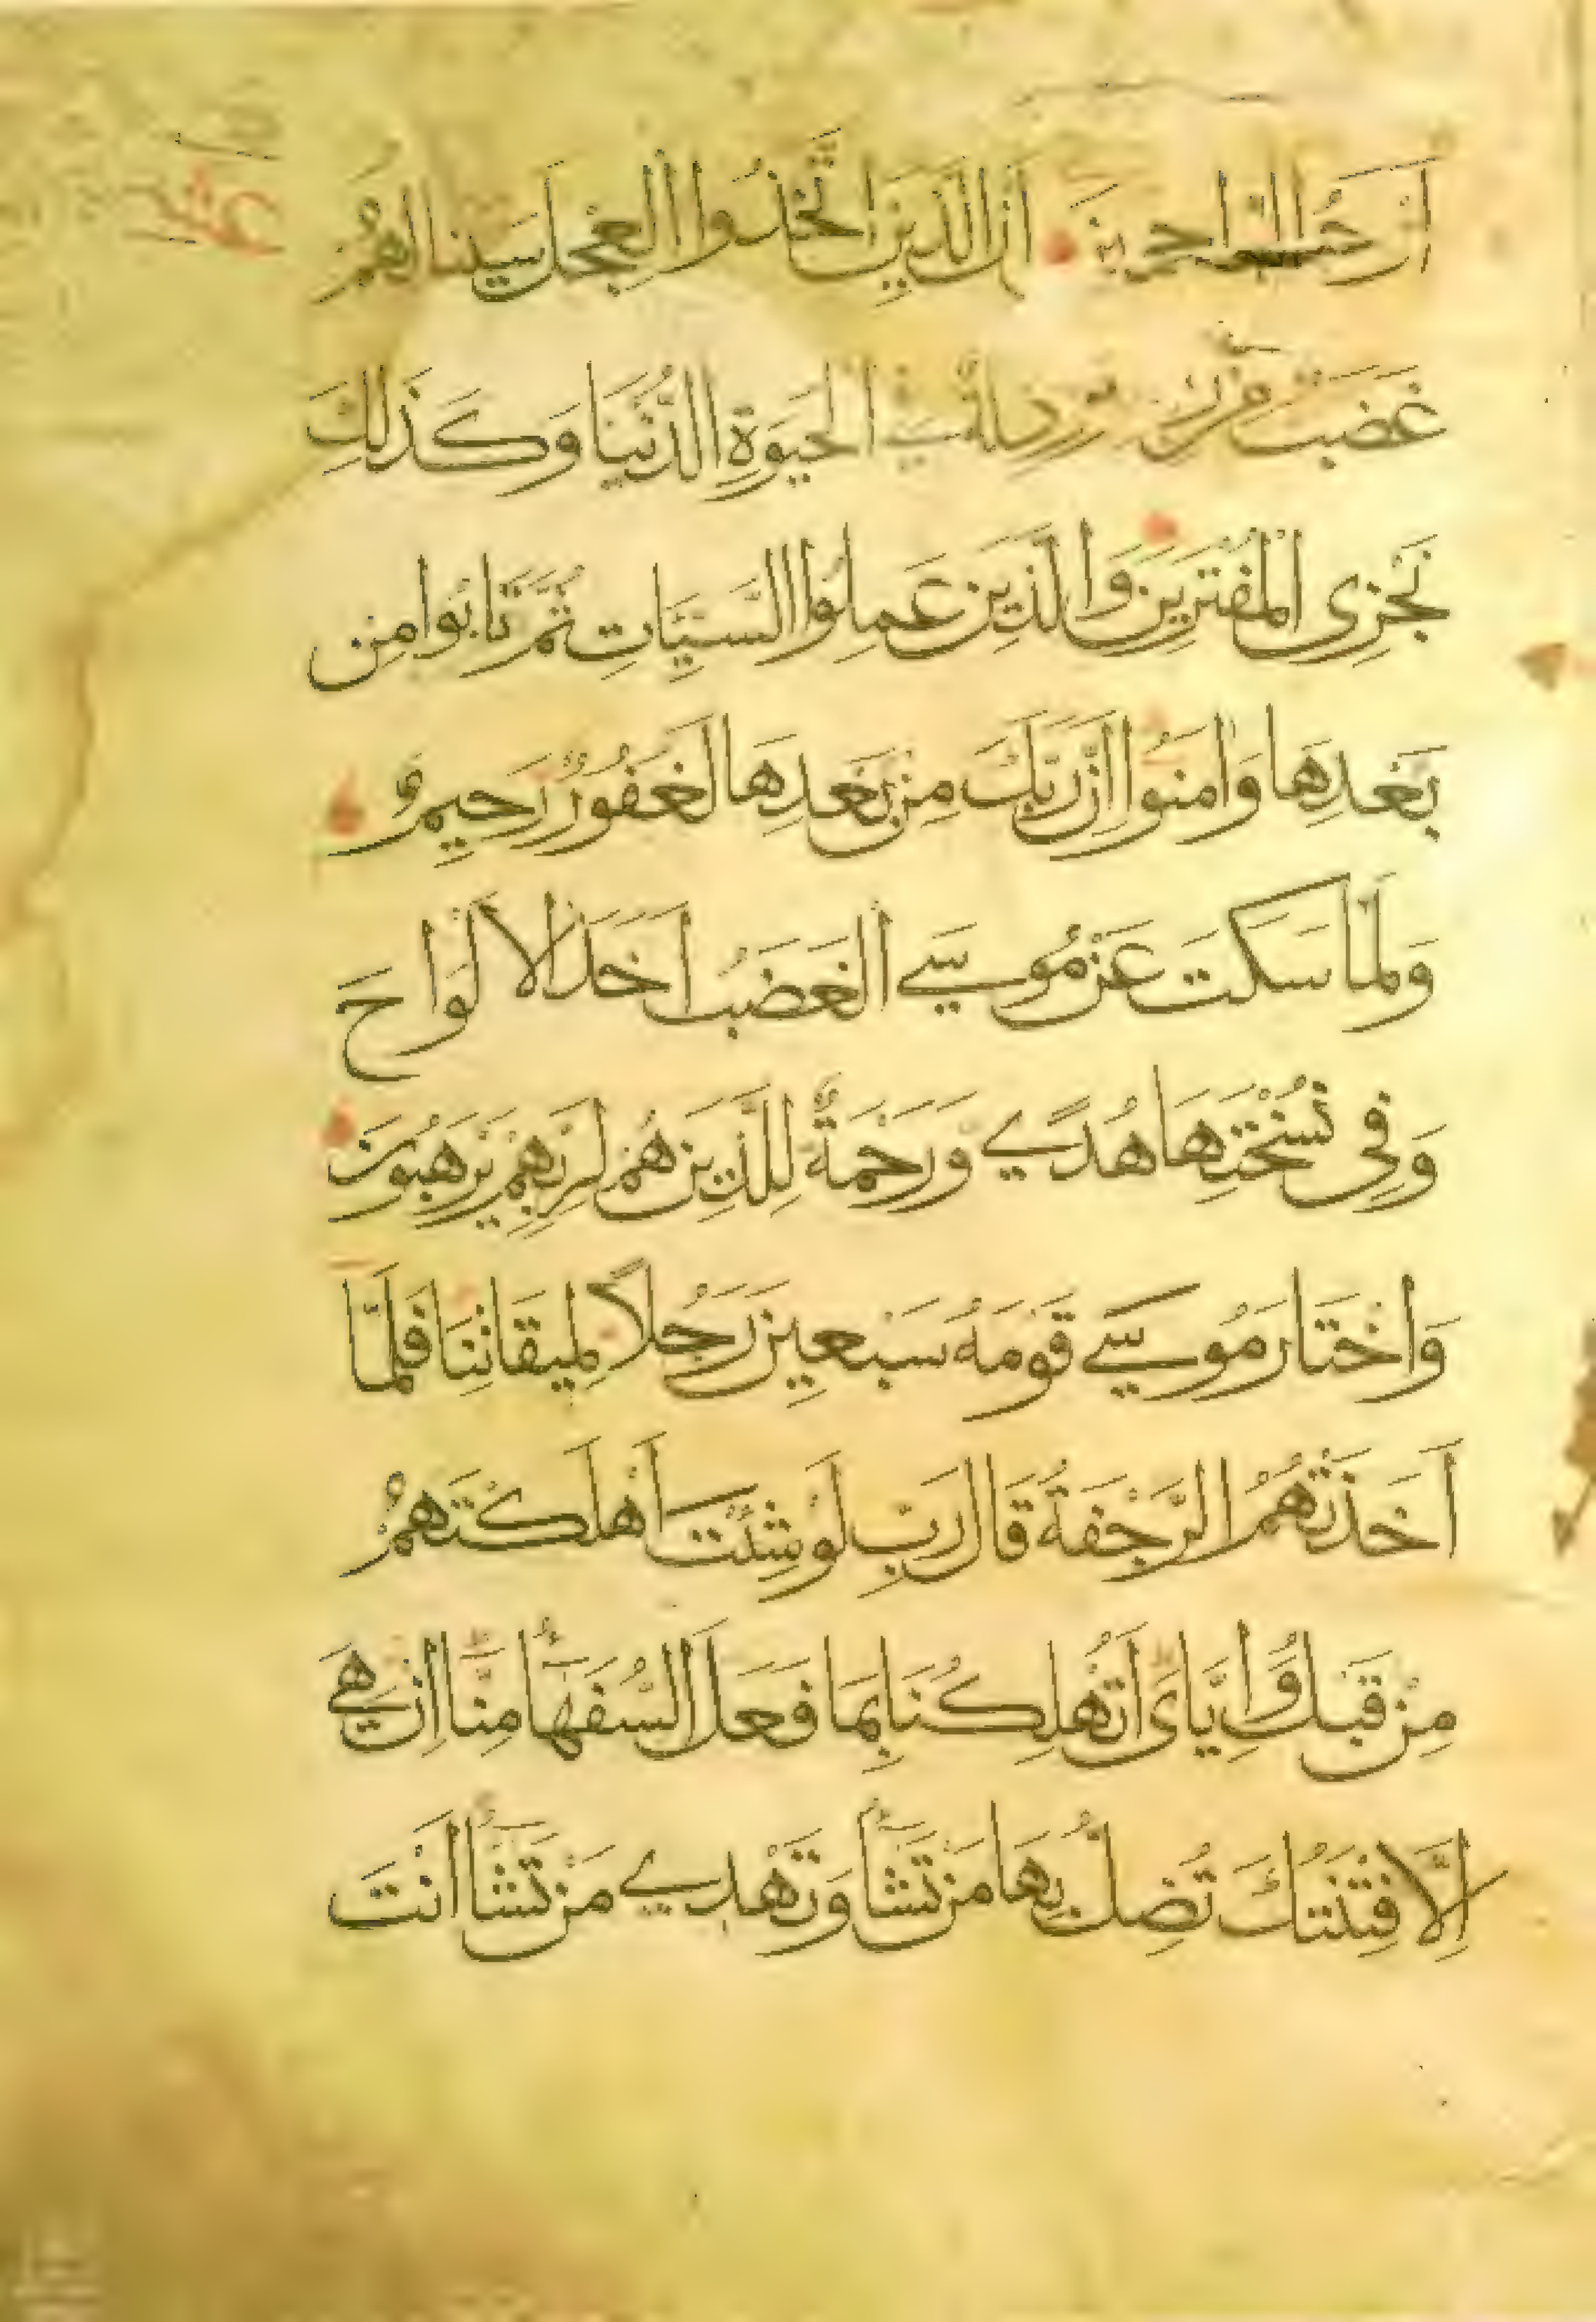 اَرْحَمُ الرَّاحِمِينَ اِنَّ الَّذِينَ اتَّخَذُوا الْعِجْلَ سَيَنَالُهُمْ
غَضَبٌ مِّنْ وَذِلَّةٌ فِي الْحَيَوةِ الدُّنْيَا وَكَذَلِكَ
نَجْزِي الْمُفْتَرِينَ وَالَّذِينَ عَمِلُوا السَّيِّاَتِ ثُمَّ تَابُوا مِن
بَعْدِهَا وَاٰمَنُوا اِنَّ رَبَّكَ مِنْ بَعْدِهَا لَغَفُورٌ رَحِيمٌ
وَلَمَّا سَكَتَ عَنْ مُوسَي الْغَضَبُ اَخَذَ الْاَلْوَاحَ
وَفِي نُسْخَتِهَا هُدًي وَرَحْمَةٌ لِلَّذِينَ هُمْ لِرَبِّهِمْ يَرْهَبُونَ
وَاخْتَارَ مُوسَي قَوْمَهُ سَبْعِينَ رَجُلًا لِمِيقَاتِنَا فَلَمَّا
اَخَذَتْهُمُ الرَّجْفَةُ قَالَ رَبِّ لَوْ شِئْتَ اَهْلَكْتَهُمْ
مِنْ قَبْلُ وَاِيَّايَ اَتُهْلِكُنَا بِمَا فَعَلَ السُّفَهَآءُ مِنَّا اِنْ هِيَ
اِلَّا فِتْنَتُكَ تُضِلُّ بِهَا مَنْ تَشَآءُ وَتَهْدِي مَنْ تَشَآءُ اَنْتَ